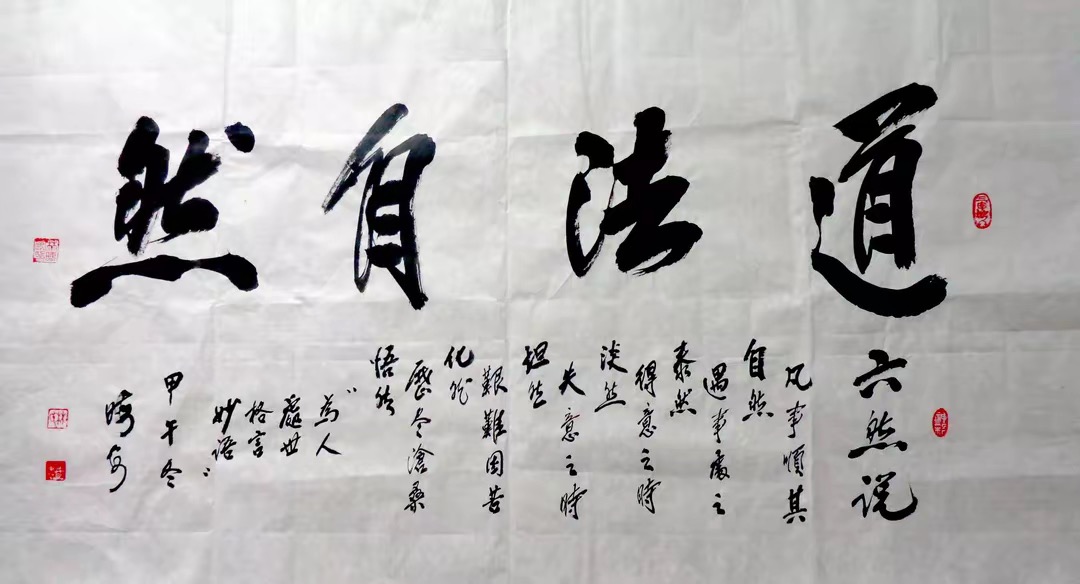 道法自然
六然说
凡事順其
自然
遇事處之
泰然
得意之時
淡然
失意之時
坦然
艱難困苦
化然
歷尽滄桑
悟然
"為人
處世
格言
妙语"
甲午冬